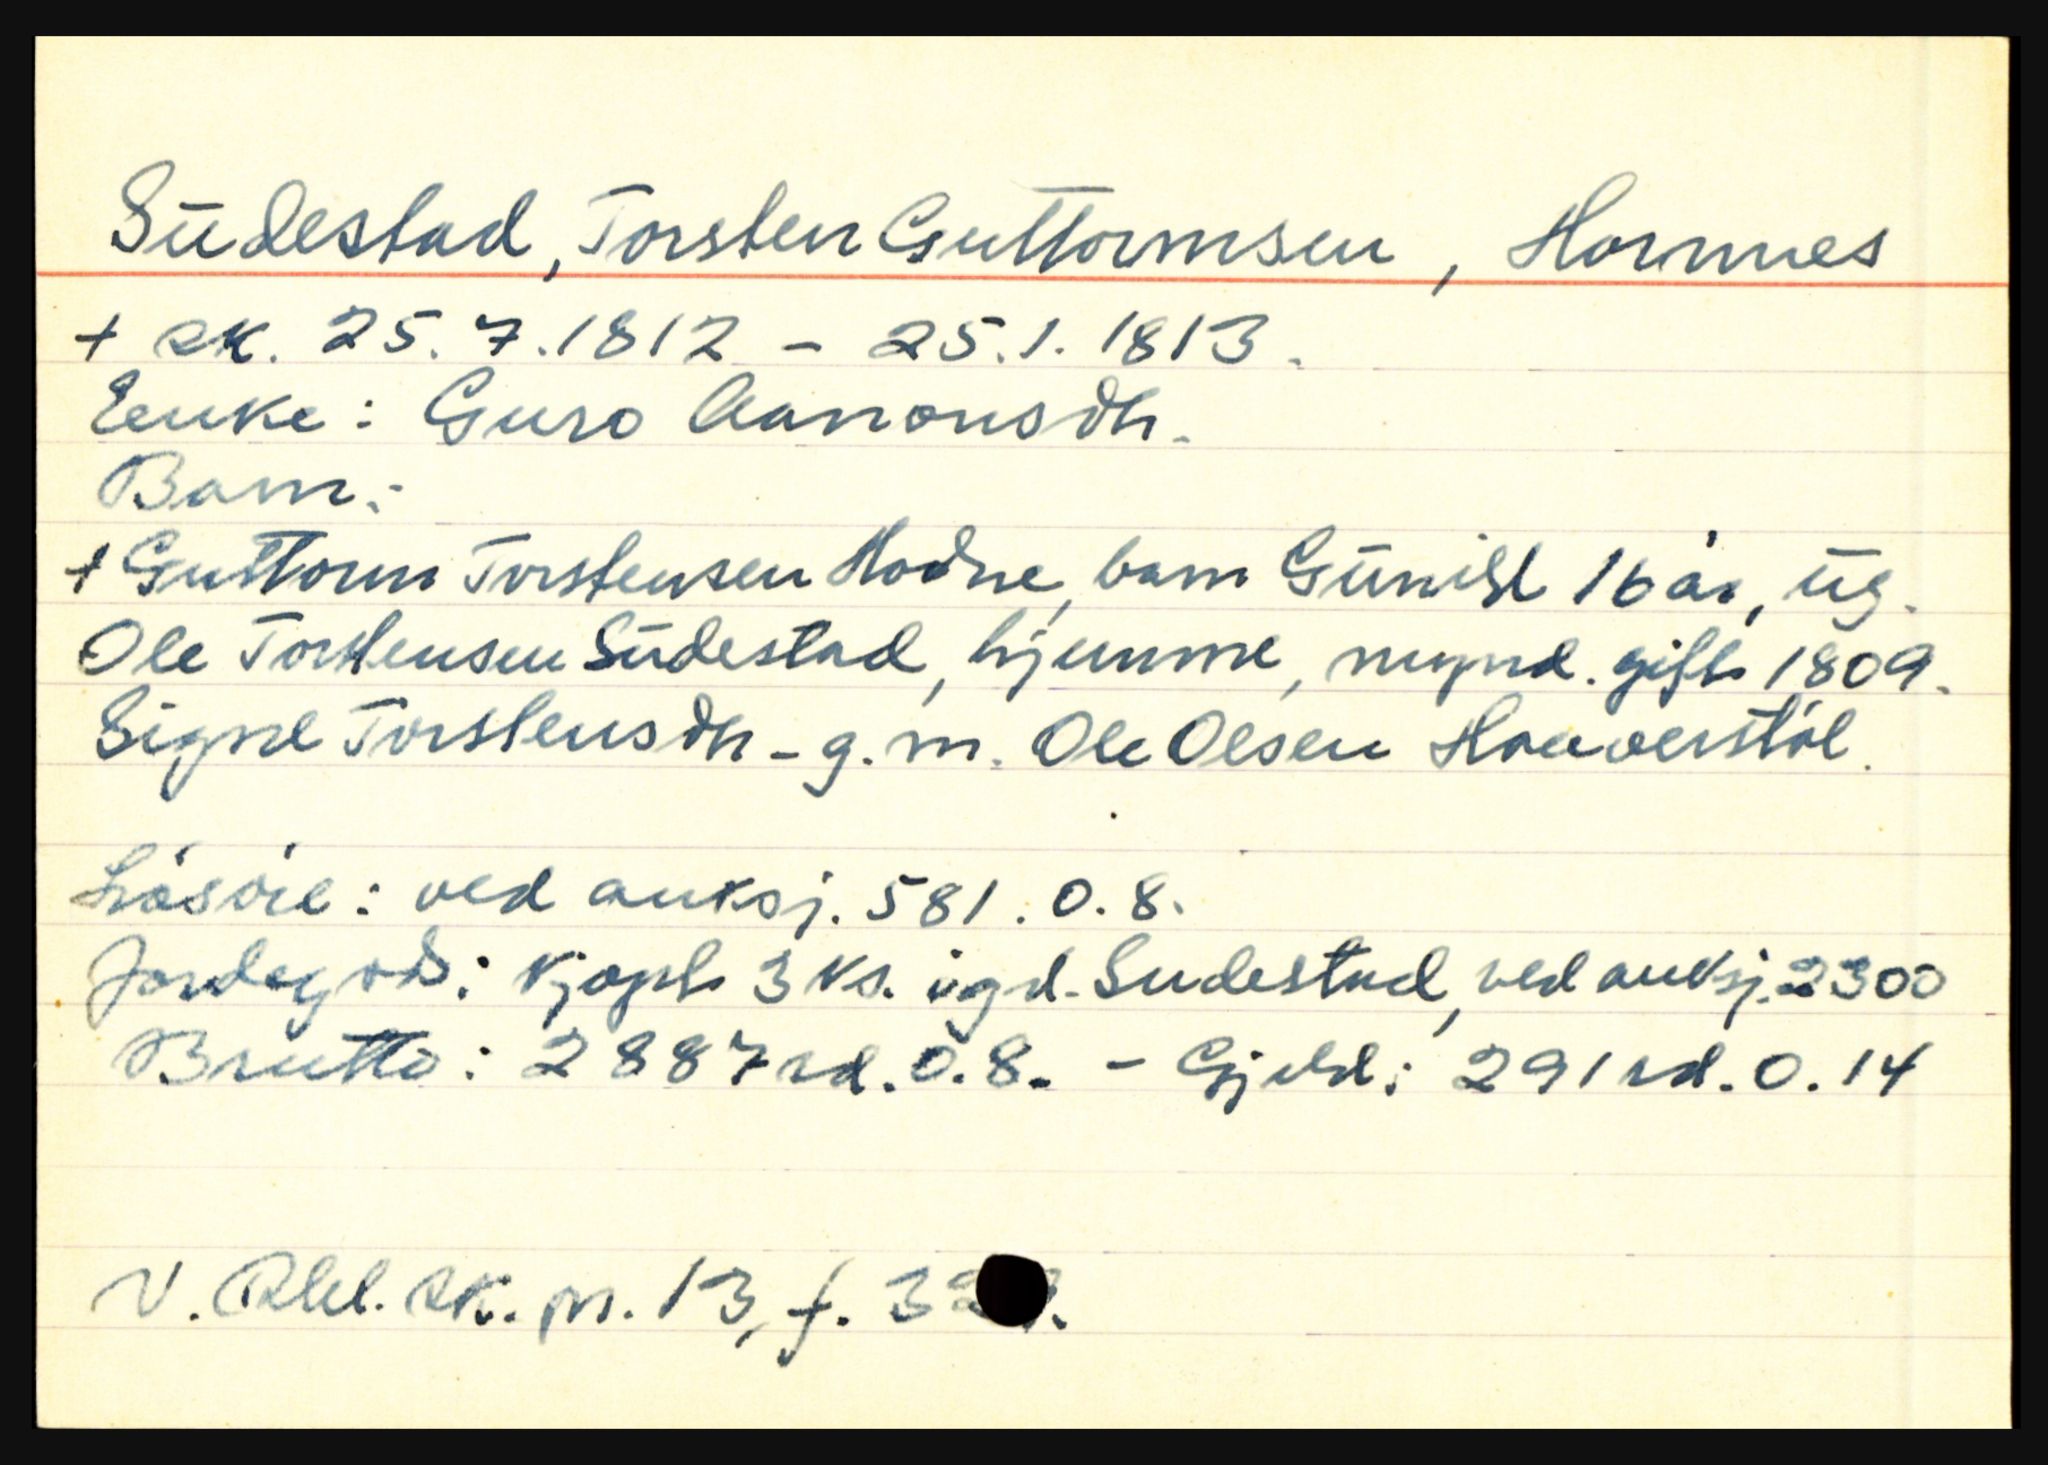 Sūdestad, Torsten Guttormsen, Hornnes
+ sk. 25.7.1812 - 25.1.1813.
Enke: Guro Aanonsdtr.
Barn:
+ Guttorm Torstensen Hodne, barn Gūnild 16 år, ūg.
Ole Torstensen Sūdestad, hjemme, mynd. gift 1809.
Signe Torstensdtr - g. m. Ole Olsen Haaverstøl.
Løsøre: ved auksj. 581.0.8.
Jordegods: kjøpt 3 ks. i gd. Sudestad, ved auksj. 2300
Brutto: 2887 rd. 0.8. - Gjeld: 291 rd. 0.14
V. Rbl. sk. pr. 13, f.